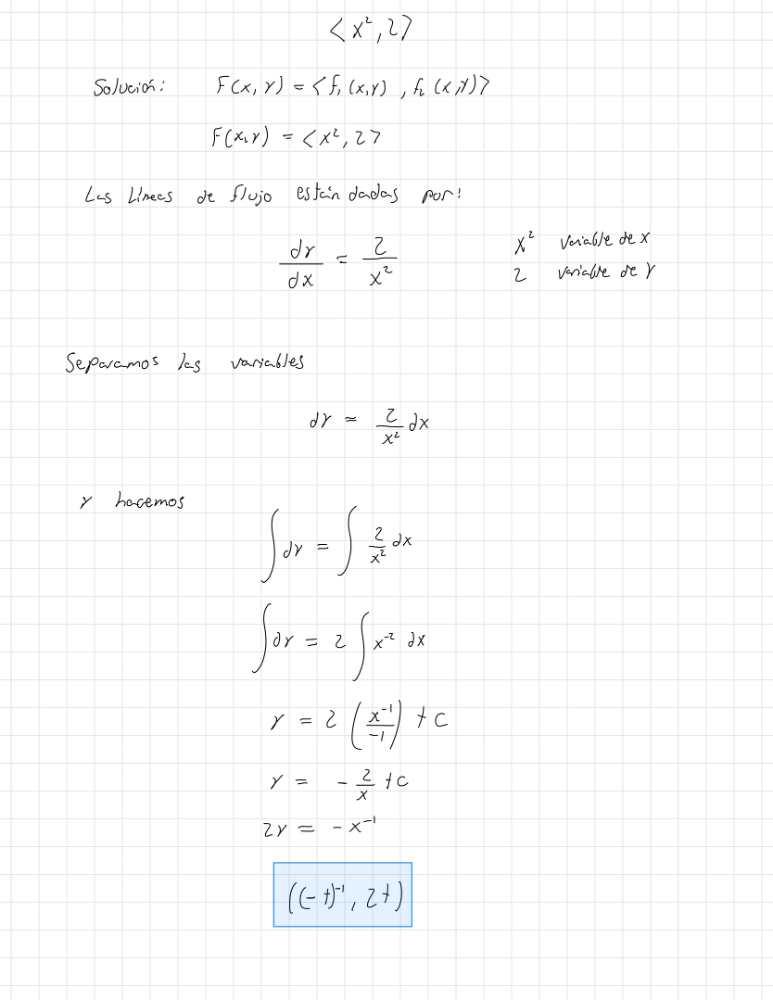 < x², 2 >
Solución: F(x, y) = < f₁ (x,y) , f₂ (x,y) >
F(x,y) = < x², 2 >
Las Líneas de flujo están dadas por:
dy/dx = 2/x²
x² variable de x
2 variable de y
Separamos las variables
dy = 2/x² dx
y hacemos
∫dy = ∫ 2/x² dx
∫dy = 2 ∫ x⁻² dx
y = 2 (x⁻¹/-1) + C
y = - 2/x + C
2y = - x⁻¹
((-t)⁻¹, 2t)